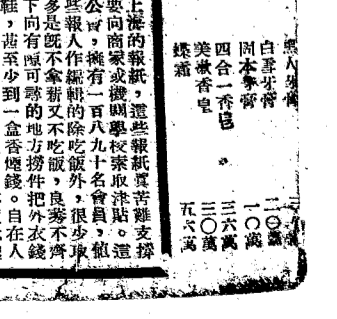 黑人牙膏
白雪牙膏
固本牙膏 一〇萬
四合一香皂 三六萬
美琪香皂 三〇萬
蝶霜 五六萬
上海的報紙，這些報紙眞苦難支撐
要向商家或機關學校索取津貼。這
公會，擁有一百八九十名會員，値
些報人作編輯的除吃飯外，很少取
多是既不拿薪又不吃飯，良莠不齊
下向有頭可尋的地方撈件把外衣錢
鞋，甚至少到一盒香煙錢。自在人